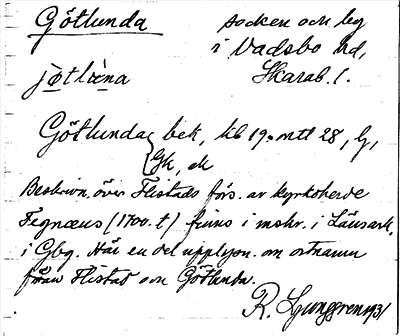 Götlunda
socken och by
i Vadsbo hd,
Skarab. l.
jøtlùna
Götlunda bek, kb 19. mtl 28, G,
Gk, m
Beskrivn. över Flistads förs. av kyrkoherde
Tegnæus (1700. t) finns i mskr. i Läns ark.
i Gbg. Här en del upplysn. om ortnamn
från Flistad och Götlunda.
R. Ljunggren 1931